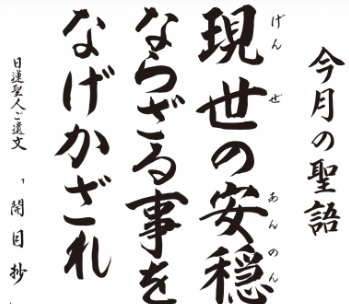 今月の聖語
現世の安穏
げんぜあんのん
ならざる事を
なげかざれ
日蓮聖人ご遺文
、開目抄